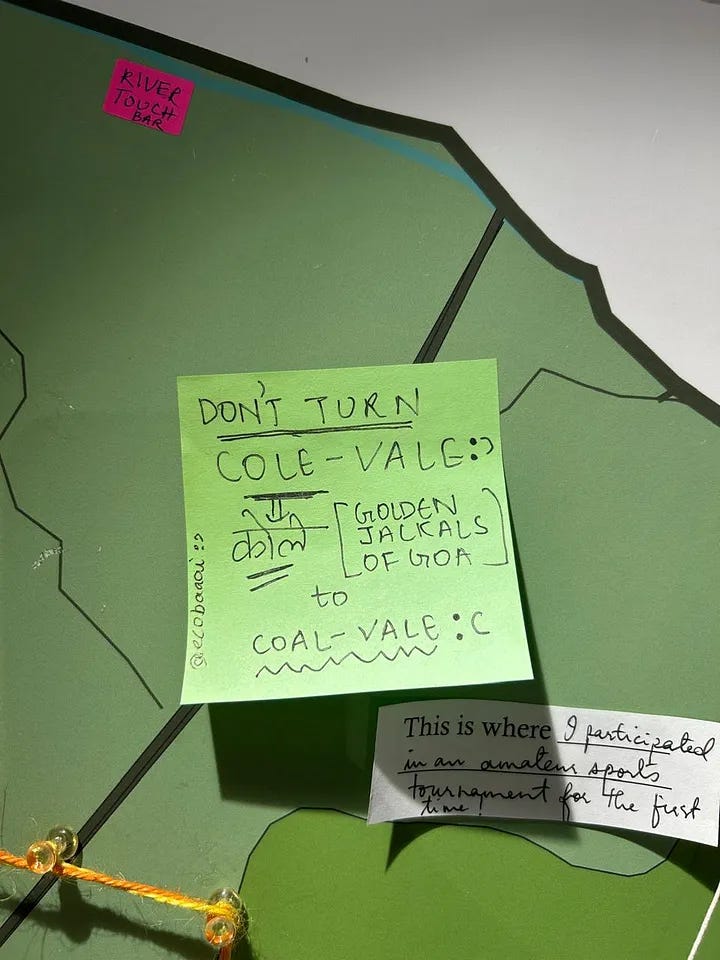 RIVER
TOUCH
BAR
DON'T TURN
COLE-VALE:)
कोले [GOLDEN
JACKALS
OF GOA]
to
COAL-VALE :C
@ecobaaai :)
This is where I participated
in an amateur sports
tournament for the first
time!